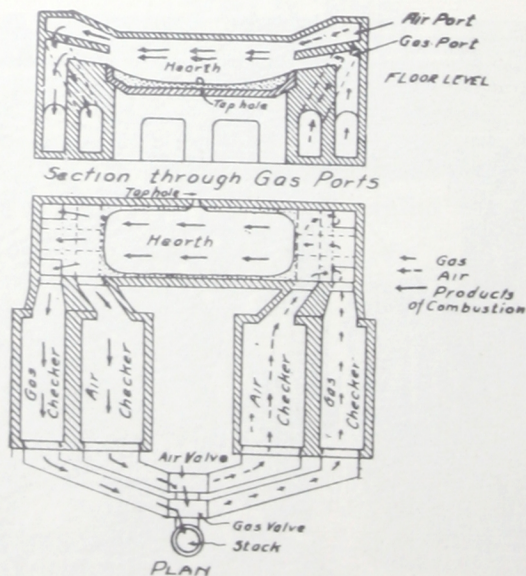 Air Port
Gas Port
Hearth
FLOOR LEVEL
Tap hole
Section through Gas Ports
Tap hole
Hearth
Gas
Air
Products
of Combustion
Gas
Checker
Air
Checker
Air
Checker
Gas
Checker
Air Valve
Gas Valve
Stack
PLAN